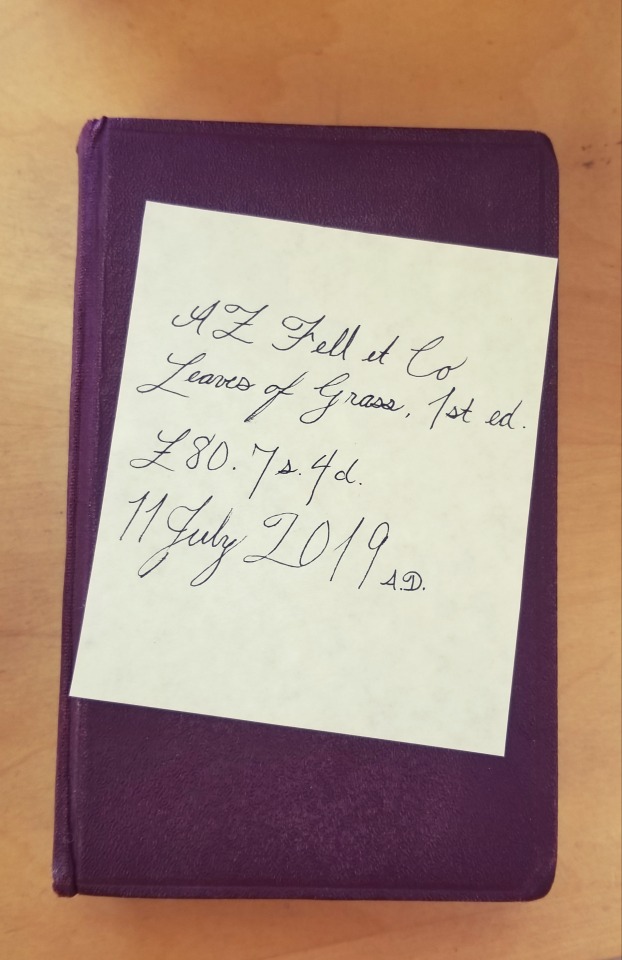 AZ Fell et Co
Leaves of Grass, 1st ed.
£80.7s.4d.
11 July 2019 A.D.